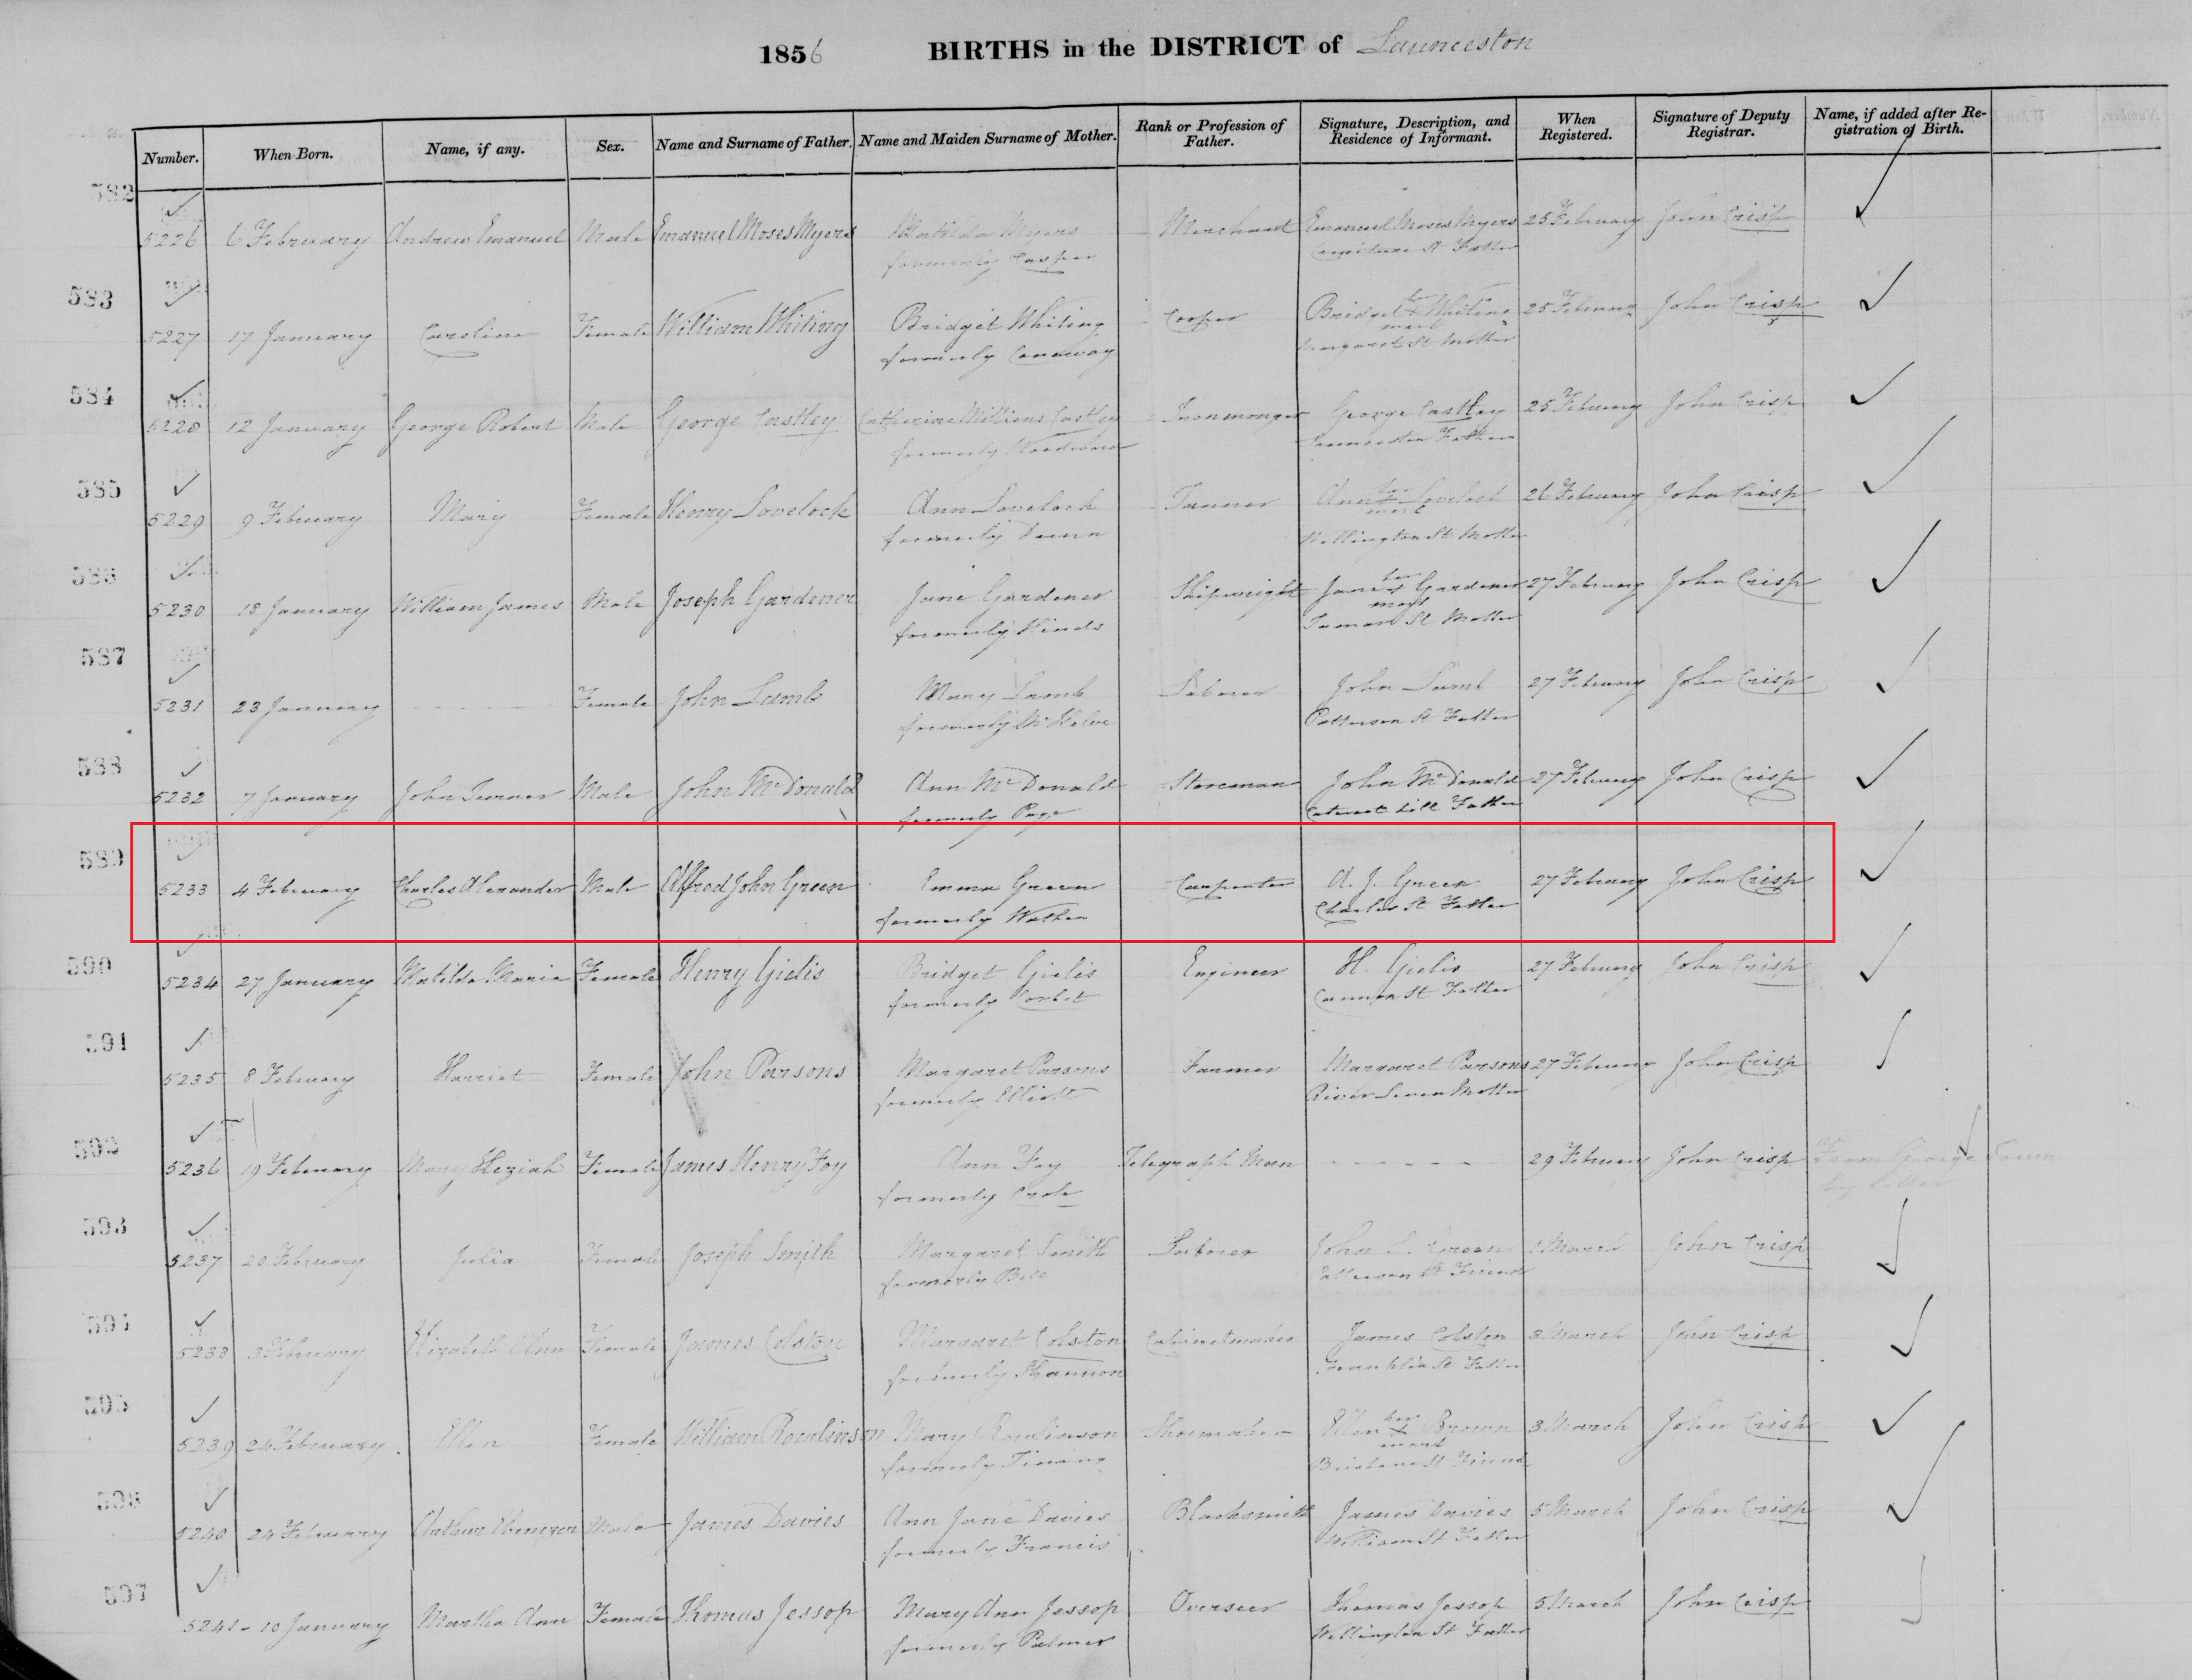 1856 BIRTHS in the DISTRICT of Launceston
Number. When Born. Name, if any. Sex. Name and Surname of Father. Name and Maiden Surname of Mother. Rank or Profession of Father. Signature, Description, and Residence of Informant. When Registered. Signature of Deputy Registrar. Name, if added after Registration of Birth.
582
5226 6 February Andrew Emanuel Male Emanuel Moses Myers Matilda Myers Merchant Emanuel Moses Myers 25 February John Crisp
formerly Casper St Father
583
5227 17 January Caroline Female William Whiting Bridget Whiting Cooper Bridget her x mark Whiting 25 February John Crisp
formerly Conoway Margaret St Mother
584
5228 12 January George Robert Male George Castley Catherine Williams Castley Ironmonger George Castley 25 February John Crisp
formerly Woodward Launceston Father
585
5229 9 February Mary Female Henry Lovelock Ann Lovelock Tanner Ann her x mark Lovelock 26 February John Crisp
formerly Dunn Wellington St Mother
586
5230 18 January William James Male Joseph Gardener Jane Gardener Shipwright Jane her x mark Gardener 27 February John Crisp
formerly Hinds Tamar St Mother
587
5231 23 January - - - - - Female John Lamb Mary Lamb Laborer John Lamb 27 February John Crisp
formerly Patterson St Father
588
5232 7 January John Turner Male John McDonald Ann McDonald Storeman John McDonald 27 February John Crisp
formerly Page Cataract hill Father
589
5233 4 February Charles Alexander Male Alfred John Green Emma Green Carpenter A. J. Green 27 February John Crisp
formerly Charles St Father
590
5234 27 January Matilda Maria Female Henry Gielis Bridget Gielis Engineer H. Gielis 27 February John Crisp
formerly Corbet Cannon St Father
591
5235 8 February Harriet Female John Parsons Margaret Parsons Farmer Margaret Parsons 27 February John Crisp
formerly Elliott River Mother
592
5236 19 February Mary Keziah Female James Henry Foy Ann Foy Telegraph Man - - - - - 29 February John Crisp From George Town
formerly by letter
593
5237 20 February Julia Female Joseph Smith Margaret Smith Laborer John Green 1 March John Crisp
formerly Bell Patterson St Friend
594
5238 3 February Elizabeth Ann Female James Colston Margaret Colston Cabinetmaker James Colston 3 March John Crisp
formerly Shannon Franklin St Father
595
5239 24 February Ellen Female William Rowlinson Mary Rowlinson Shoemaker Ellen her x mark Brown 3 March John Crisp
formerly Brisbane St Friend
596
5240 24 February Arthur Ebenezer Male James Davies Ann Jane Davies Blacksmith James Davies 5 March John Crisp
formerly Francis William St Father
597
5241 - 10 January Martha Ann Female Thomas Jessop Mary Ann Jessop Overseer Thomas Jessop 5 March John Crisp
formerly Palmer Wellington St Father